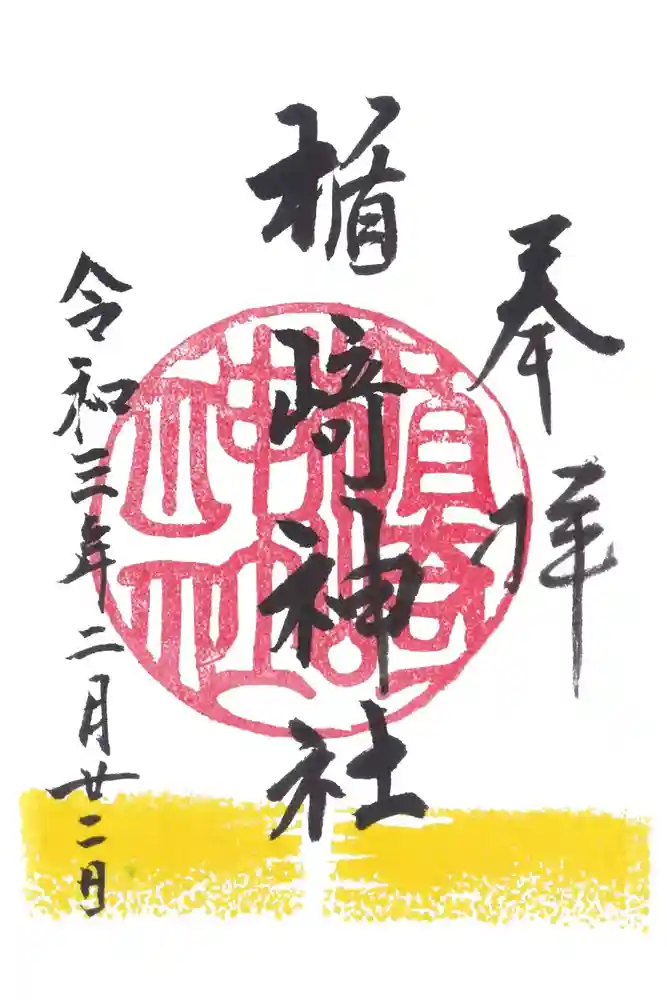 奉拝
楯崎神社
楯崎神社
令和三年二月廿二日